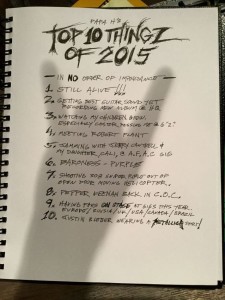 PAPA H'S
TOP 10 THINGZ
OF 2015
— IN NO ORDER OF IMPORTANCE —
1. STILL ALIVE!!!
2. GETTING BEST GUITAR SOUND YET
RECORDING NEW ALBUM @ HQ
3. WATCHING MY CHILDREN GROW
ESPECIALLY
4. MEETING ROBERT PLANT
5. JAMMING WITH JERRY CANTRELL &
MY DAUGHTER, CALI, @ A.F.A.C GIG
6. BARONESS - PURPLE
7. SHOOTING FOR HUNGRY
OPEN DOOR MOVING HELICOPTER.
8. PEPPER KEENAN BACK IN C.O.C.
9. HAVING FANS ON STAGE AT GIGS THIS YEAR
EUROPE/RUSSIA/UK/USA/CANADA/BRAZIL
10. JUSTIN BIEBER WEARING A METALLICA SHIRT!